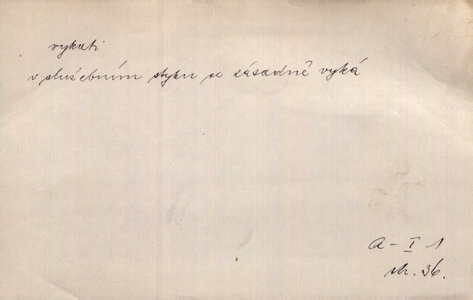 vykati
v služebním styku se zásadně vyká
A - I 1
str. 36.